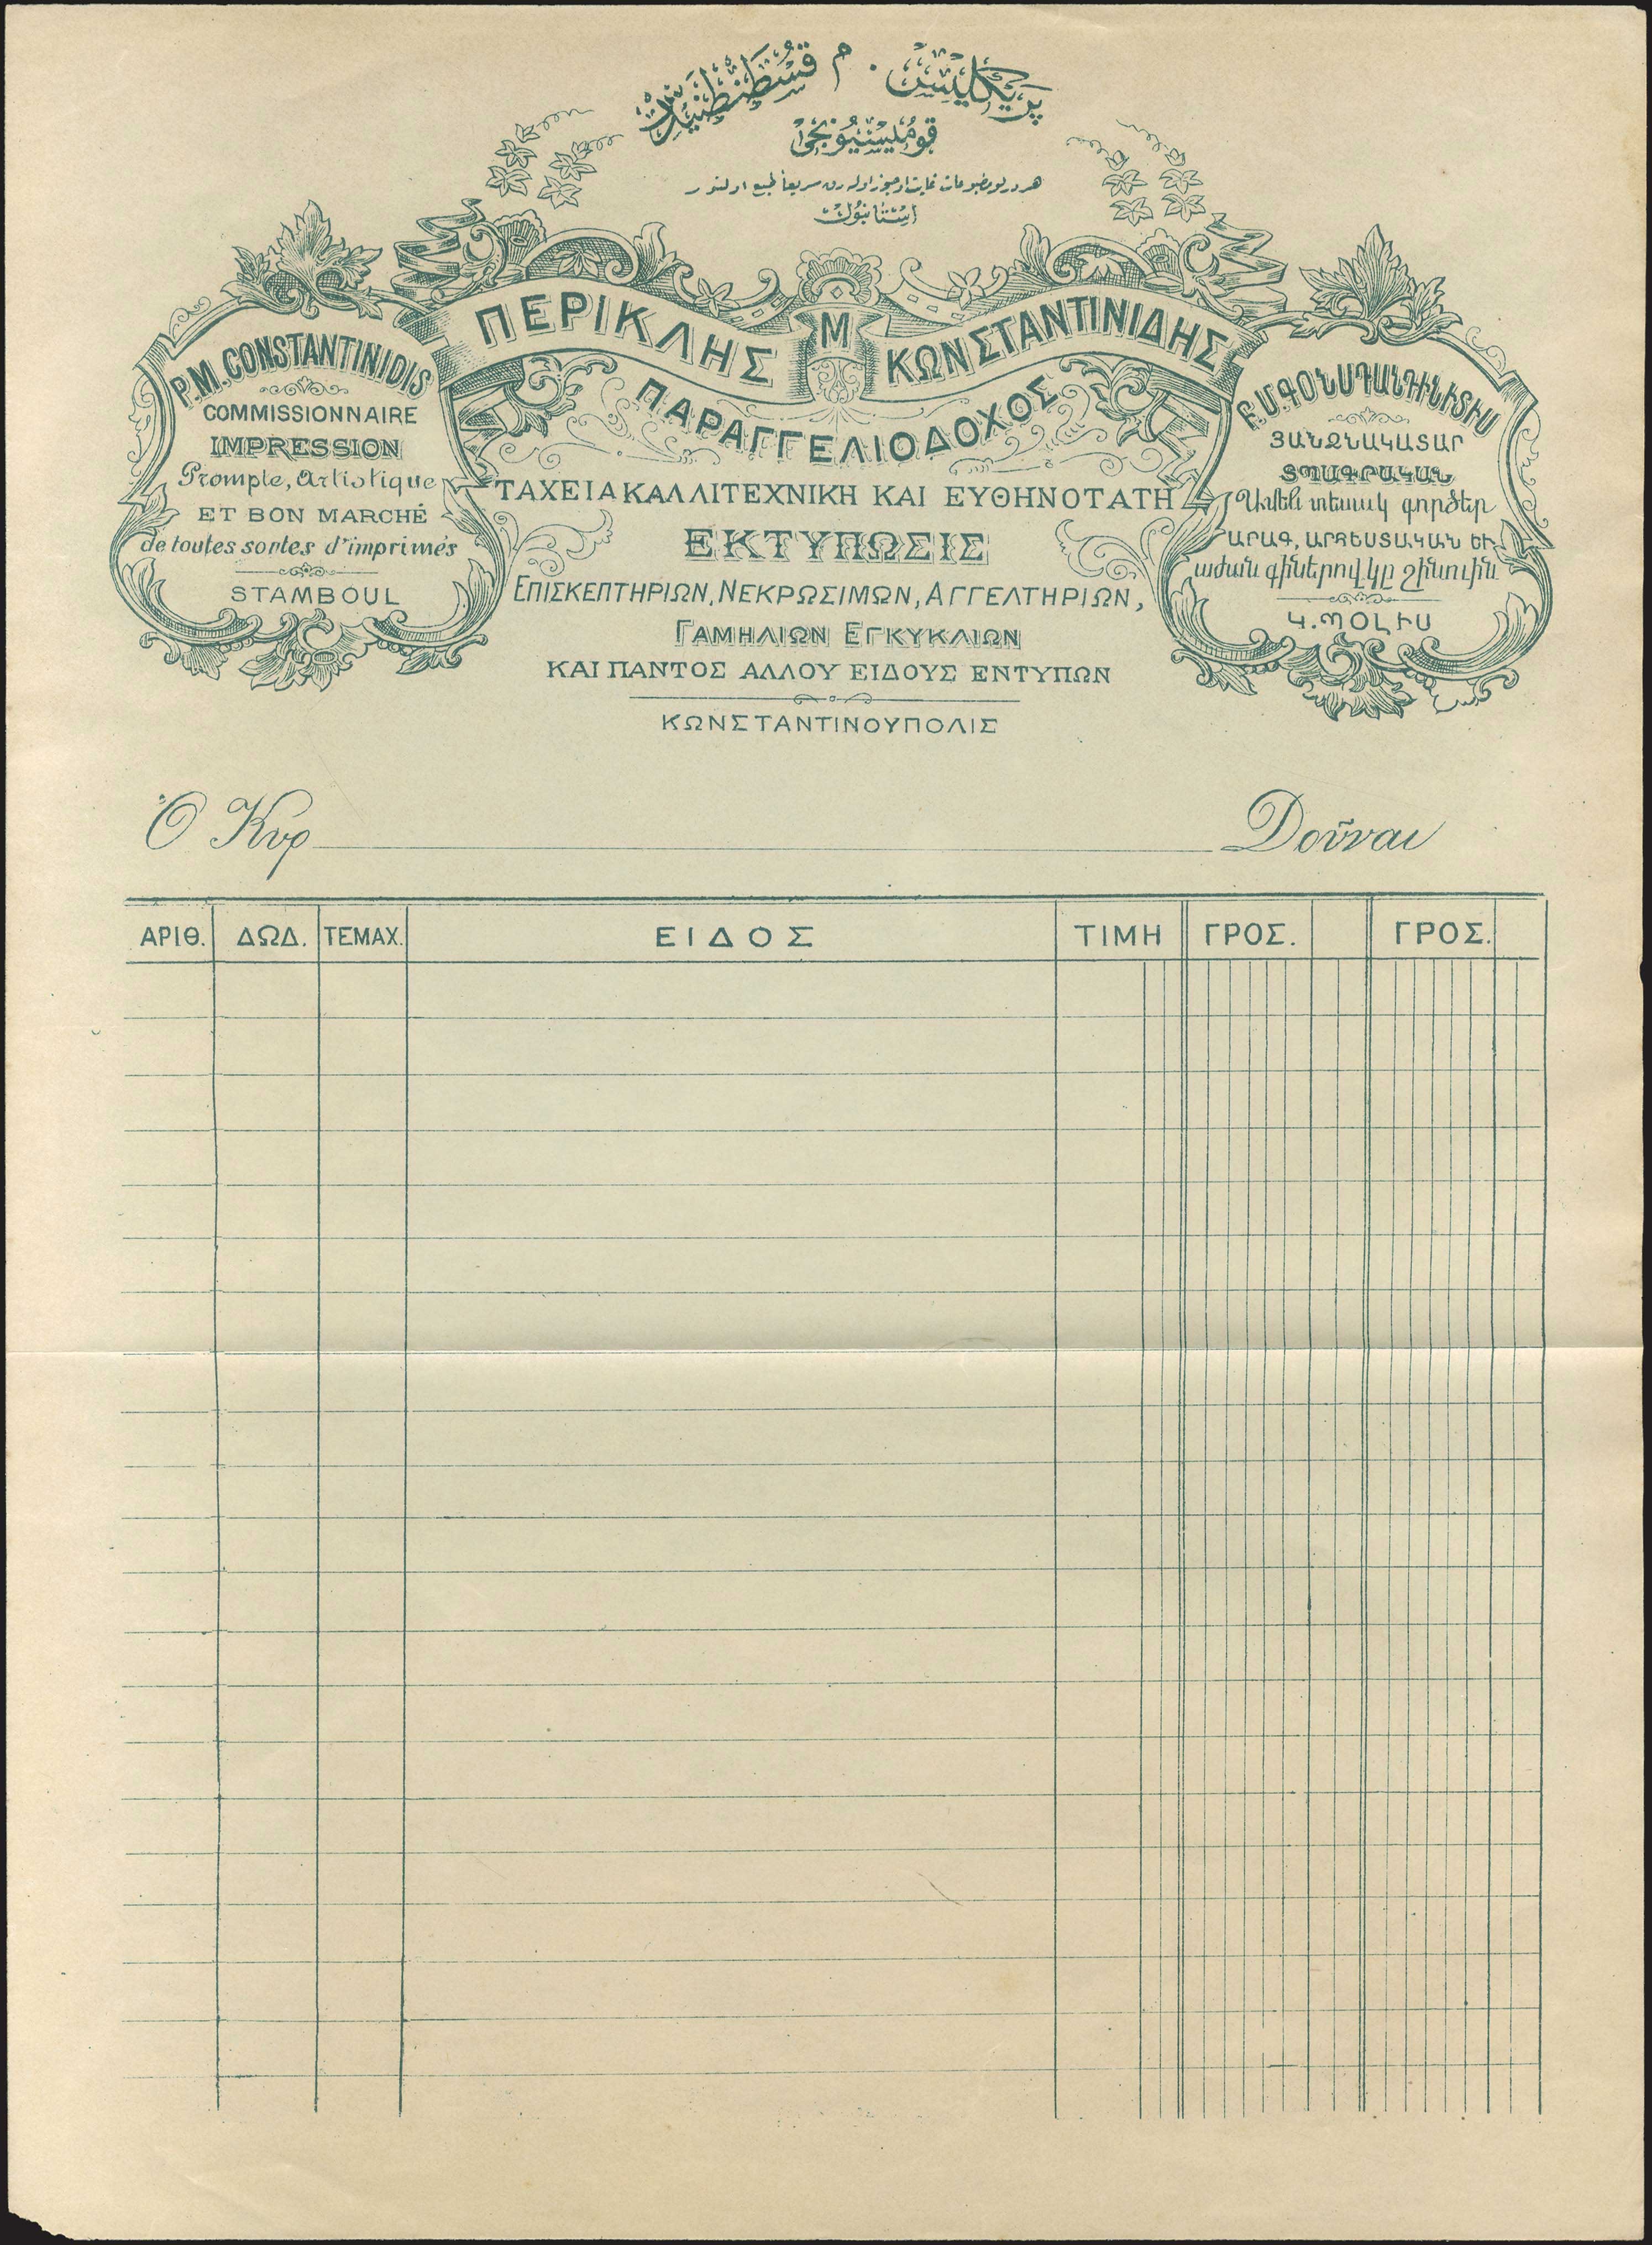 پریكلیس . م قسطنطنیدی
قومیسیونجی
هر درلو مطبوعات غایت اوجوز اوله رق سریعا طبع اولنور
استانبول
ΠΕΡΙΚΛΗΣ Μ ΚΩΝΣΤΑΝΤΙΝΙΔΗΣ
ΠΑΡΑΓΓΕΛΙΟΔΟΧΟΣ
ΤΑΧΕΙΑ ΚΑΛΛΙΤΕΧΝΙΚΗ ΚΑΙ ΕΥΘΗΝΟΤΑΤΗ
ΕΚΤΥΠΩΣΙΣ
ΕΠΙΣΚΕΠΤΗΡΙΩΝ, ΝΕΚΡΩΣΙΜΩΝ, ΑΓΓΕΛΤΗΡΙΩΝ,
ΓΑΜΗΛΙΩΝ ΕΓΚΥΚΛΙΩΝ
ΚΑΙ ΠΑΝΤΟΣ ΑΛΛΟΥ ΕΙΔΟΥΣ ΕΝΤΥΠΩΝ
ΚΩΝΣΤΑΝΤΙΝΟΥΠΟΛΙΣ
P. M. CONSTANTINIDIS
COMMISSIONNAIRE
IMPRESSION
Prompte, Artistique
ET BON MARCHÉ
de toutes sortes d'imprimés
STAMBOUL
Բ. Մ. ԳՕՆՍԴԱՆԴԻՆԻՏԻՍ
ՅԱՆՁՆԱԿԱՏԱՐ
ՏՊԱԳՐԱԿԱՆ
Ամեն տեսակ գործեր
ԱՐԱԳ, ԱՐՀԵՍՏԱԿԱՆ ԵՒ
աժան գիներով կը շինուին
Կ. ՊՕԼԻՍ
Ὁ Κυρ Δοῦναι
ΑΡΙΘ. ΔΩΔ. ΤΕΜΑΧ. ΕΙΔΟΣ ΤΙΜΗ ΓΡΟΣ. ΓΡΟΣ.